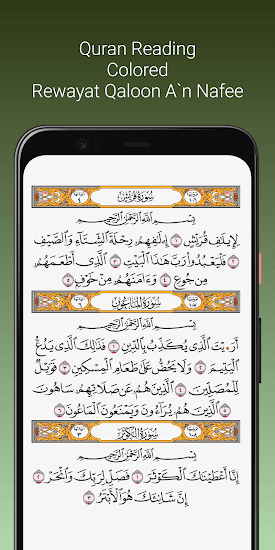 Quran Reading
Colored
Rewayat Qaloon A`n Nafee
سُورَةُ قُرَيْشٍ
بِسْمِ اللَّهِ الرَّحْمَٰنِ الرَّحِيمِ
لِإِيلَٰفِ قُرَيْشٍ ١ إِۦلَٰفِهِمْ رِحْلَةَ الشِّتَآءِ وَالصَّيْفِ
٢ فَلْيَعْبُدُواْ رَبَّ هَٰذَا الْبَيْتِ ٣ الَّذِي أَطْعَمَهُم
مِّن جُوعٍ ٤ وَءَامَنَهُم مِّنْ خَوْفٍ ٥
سُورَةُ الْمَاعُونِ
بِسْمِ اللَّهِ الرَّحْمَٰنِ الرَّحِيمِ
أَرَٰيْتَ الَّذِي يُكَذِّبُ بِالدِّينِ ١ فَذَٰلِكَ الَّذِي يَدُعُّ
الْيَتِيمَ ٢ وَلَا يَحُضُّ عَلَىٰ طَعَامِ الْمِسْكِينِ ٣ فَوَيْلٌ
لِّلْمُصَلِّينَ ٤ الَّذِينَ هُمْ عَن صَلَاتِهِمْ سَاهُونَ
٥ الَّذِينَ هُمْ يُرَآءُونَ وَيَمْنَعُونَ الْمَاعُونَ ٦
سُورَةُ الْكَوْثَرِ
بِسْمِ اللَّهِ الرَّحْمَٰنِ الرَّحِيمِ
إِنَّا أَعْطَيْنَٰكَ الْكَوْثَرَ ١ فَصَلِّ لِرَبِّكَ وَانْحَرْ ٢
إِنَّ شَانِئَكَ هُوَ الْأَبْتَرُ ٣